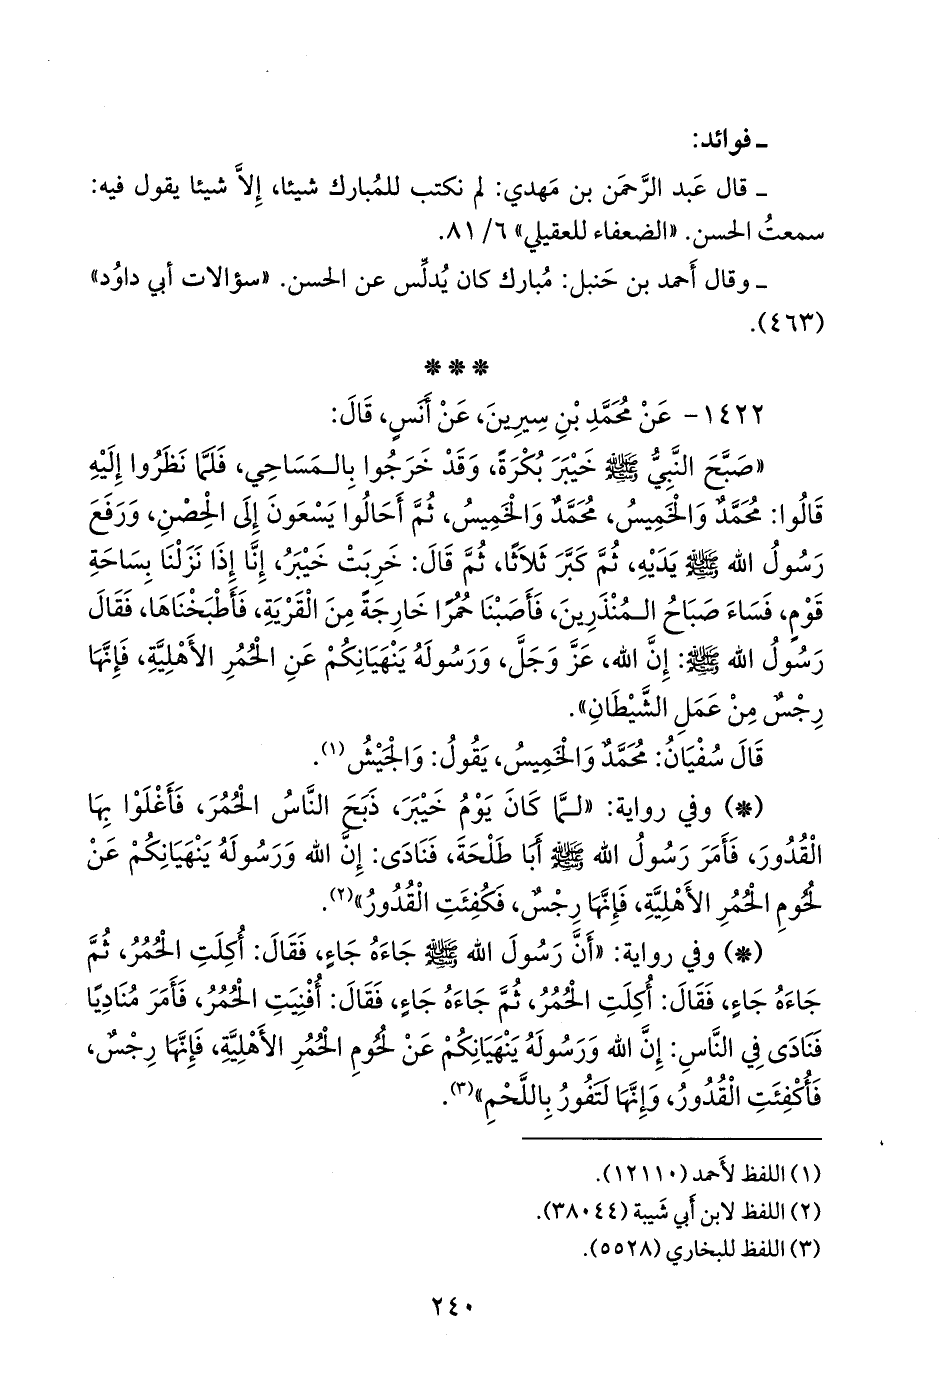 ـ فوائد:
ـ قال عَبد الرَّحمَن بن مَهدي: لم نكتب للمُبارك شيئا، إِلاَّ شيئا يقول فيه:
سمعتُ الحسن. «الضعفاء للعقيلي» ٦/ ٨١.
ـ وقال أَحمد بن حَنبل: مُبارك كان يُدلِّس عن الحسن. «سؤالات أبي داوُد»
(٤٦٣).
* * *
١٤٢٢- عَنْ مُحَمَّدِ بْنِ سِيرِينَ، عَنْ أَنَسٍ، قَالَ:
«صَبَّحَ النَّبِيُّ ﷺ خَيْبَرَ بُكْرَةً، وَقَدْ خَرَجُوا بِالـمَسَاحِي، فَلَمَّا نَظَرُوا إِلَيْهِ
قَالُوا: مُحَمَّدٌ وَالْخَمِيسُ، مُحَمَّدٌ وَالْخَمِيسُ، ثُمَّ أَحَالُوا يَسْعَونَ إِلَى الْحِصْنِ، وَرَفَعَ
رَسُولُ الله ﷺ يَدَيْهِ، ثُمَّ كَبَّرَ ثَلاَثًا، ثُمَّ قَالَ: خَرِبَتْ خَيْبَرُ، إِنَّا إِذَا نَزَلْنَا بِسَاحَةِ
قَوْمٍ، فَسَاءَ صَبَاحُ الـمُنْذَرِينَ، فَأَصَبْنَا حُمُرًا خَارِجَةً مِنَ الْقَرْيَةِ، فَأَطْبَخْنَاهَا، فَقَالَ
رَسُولُ الله ﷺ: إِنَّ الله، عَزَّ وَجَلَّ، وَرَسُولَهُ يَنْهَيَانِكُمْ عَنِ الْحُمُرِ الأَهْلِيَّةِ، فَإِنَّهَا
رِجْسٌ مِنْ عَمَلِ الشَّيْطَانِ».
قَالَ سُفْيَانُ: مُحَمَّدٌ وَالْخَمِيسُ، يَقُولُ: وَالْجَيْشُ(١).
(*) وفي رواية: «لـمَّا كَانَ يَوْمُ خَيْبَرَ، ذَبَحَ النَّاسُ الْحُمُرَ، فَأَغْلَوْا بِهَا
الْقُدُورَ، فَأَمَرَ رَسُولُ الله ﷺ أَبَا طَلْحَةَ، فَنَادَى: إِنَّ الله وَرَسُولَهُ يَنْهَيَانِكُمْ عَنْ
لُحُومِ الْحُمُرِ الأَهْلِيَّةِ، فَإِنَّهَا رِجْسٌ، فَكُفِئَتِ الْقُدُورُ»(٢).
(*) وفي رواية: «أَنَّ رَسُولَ الله ﷺ جَاءَهُ جَاءٍ، فَقَالَ: أُكِلَتِ الْحُمُرُ، ثُمَّ
جَاءَهُ جَاءٍ، فَقَالَ: أُكِلَتِ الْحُمُرُ، ثُمَّ جَاءَهُ جَاءٍ، فَقَالَ: أُفْنِيَتِ الْحُمُرُ، فَأَمَرَ مُنَادِيًا
فَنَادَى فِي النَّاسِ: إِنَّ الله وَرَسُولَهُ يَنْهَيَانِكُمْ عَنْ لُحُومِ الْحُمُرِ الأَهْلِيَّةِ، فَإِنَّهَا رِجْسٌ،
فَأُكْفِئَتِ الْقُدُورُ، وَإِنَّهَا لَتَفُورُ بِاللَّحْمِ»(٣).
(١) اللفظ لأَحمد (١٢١١٠).
(٢) اللفظ لابن أَبي شَيبة (٣٨٠٤٤).
(٣) اللفظ للبخاري (٥٥٢٨).
٢٤٠